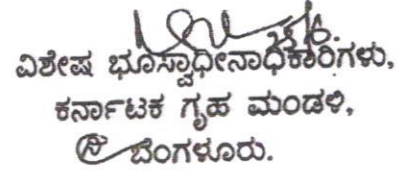 ವಿಶೇಷ ಭೂಸ್ವಾಧೀನಾಧಿಕಾರಿಗಳು,
ಕರ್ನಾಟಕ ಗೃಹ ಮಂಡಳಿ,
ಬೆಂಗಳೂರು.